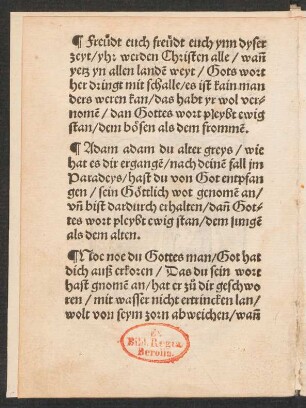 ¶ Freüdt euch freüdt euch ynn dyser
zeyt / yhr werden Christen alle / wañ
yetz yn allen landē weyt / Gots wort
her dringt mit schalle / es ist kain man
ders weren kan / das habt yr wol ver-
nomē / dan Gottes wort pleybt ewig
stan / dem bösen als dem frommē.
¶ Adam adam du alter greys / wie
hat es dir ergangē / nach deinē fall jm
Paradeys / hast du von Got entpfan
gen / sein Göttlich wot genomē an /
vñ bist dardurch erhalten / dañ Got-
tes wort pleybt ewig stan / dem jungē
als dem alten.
¶ Noe noe du Gottes man / Got hat
dich auß erkoren / Das du sein wort
hast gnomē an / hat er zů dir geschwo
ren / mit wasser nicht entrincken lan /
wolt von seym zorn abweichen / wañ
Ex
Bibl. Regia
Berolin.